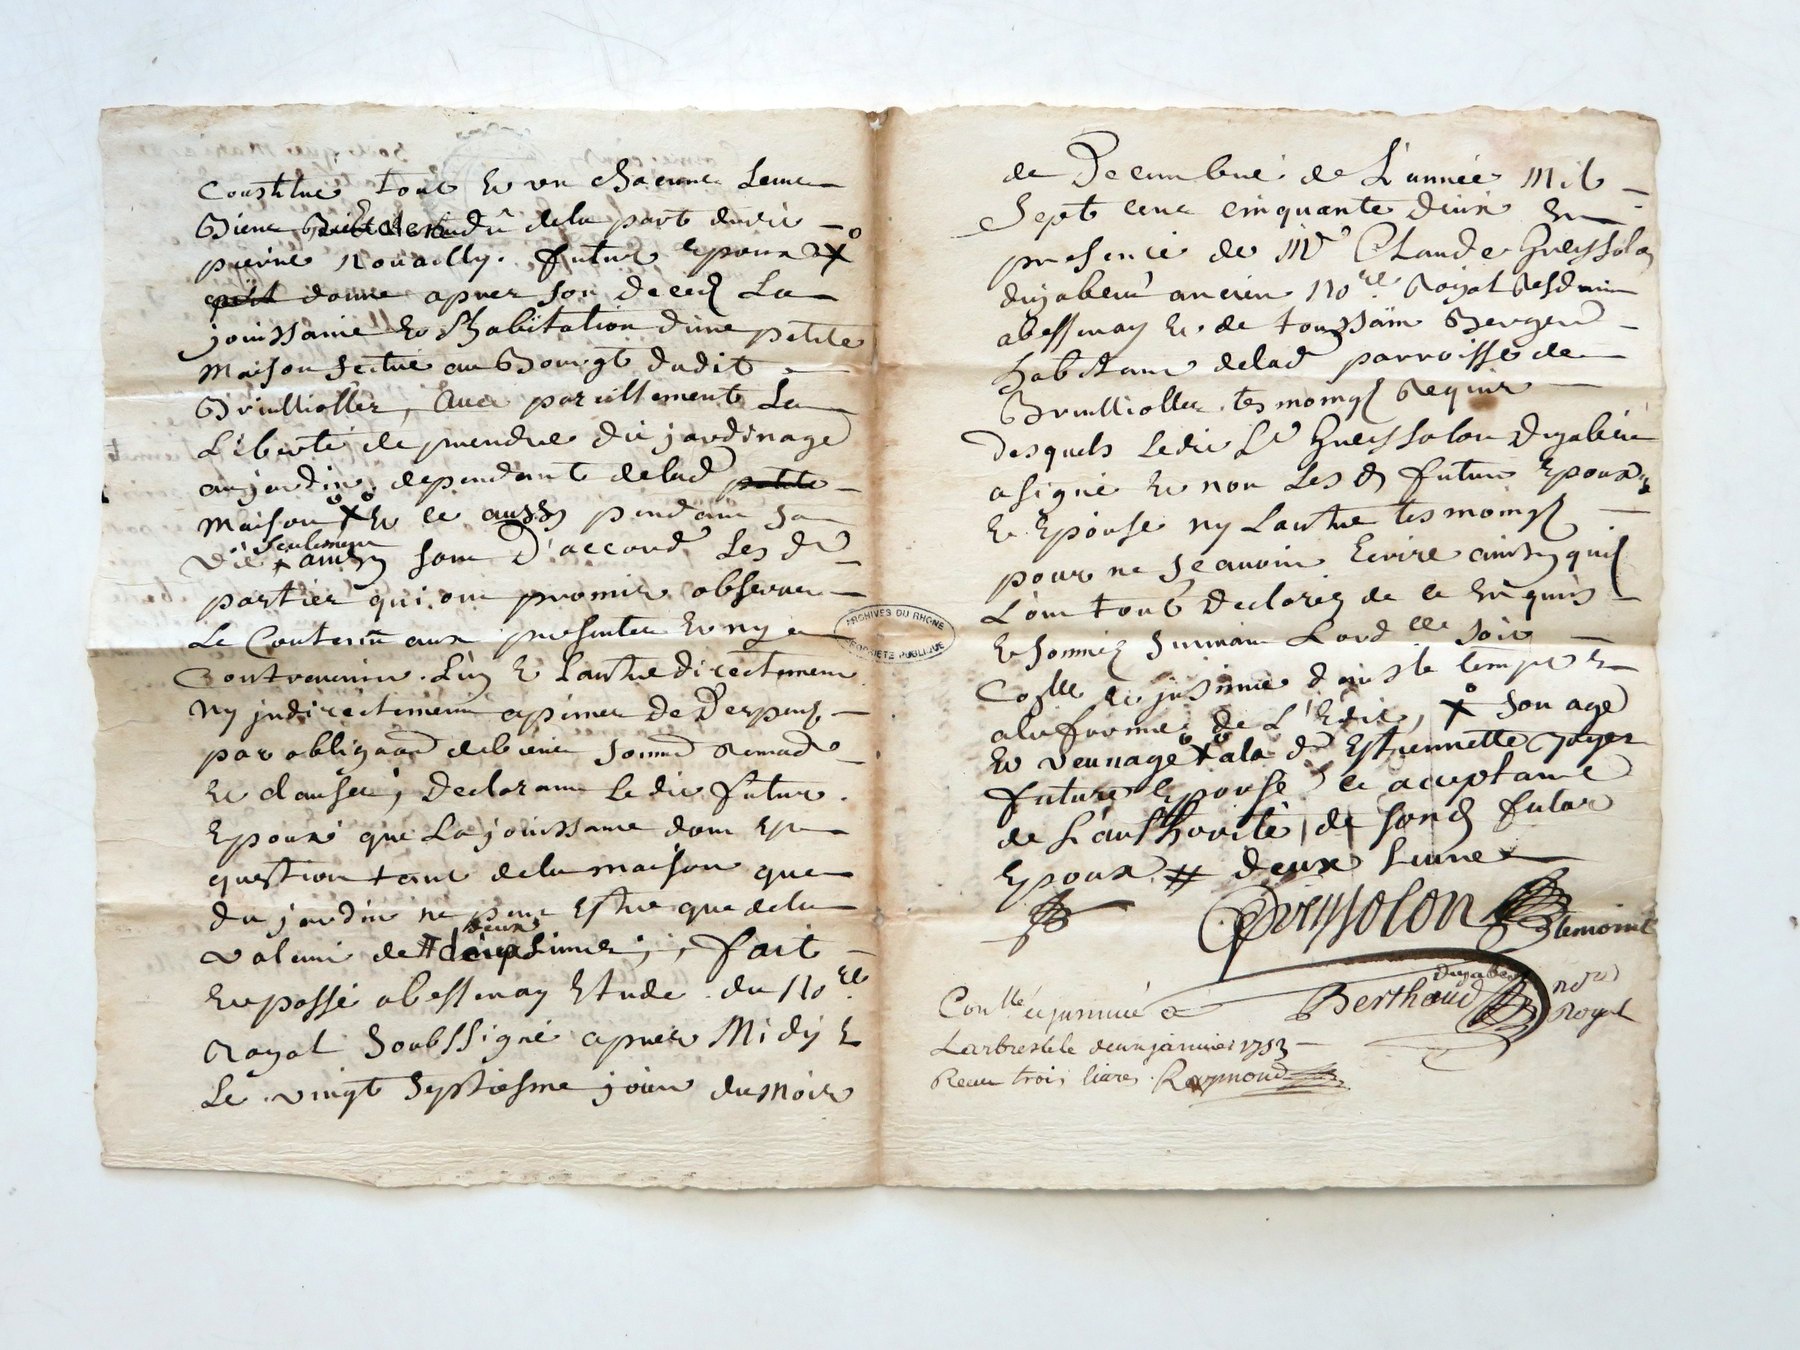 Constitué tout et un chacuns leurs
Biens dû de la part dudit
pierre Rouailly. futur epoux X
donne apres son decedz La
jouissance et Lhabitation dune petite
Maison scitue au Bourgt dudit
Brullioller, avec pareillement La
Liberté de prendre du jardinage
au jardin dependant delad petite
Maison X Et ce aussy pendant sa
vie seulement ainsy sont D'accord Les d
parties qui ont promis observer
Le Contenu aux presentes Et ny
Contrevenir. L'un Et Lautre directement
Ny judirectement a peines de Despens
par obligaon de biens soumd Renond
Et clauses, Declarant Ledit futur
Epoux que La jouissance dont Est
question tant de la maison que
du jardin ne peut Estre que de la
valeur de # deux
Et passé a Bessenay Etude du No.re
Royal Soubssigné apres Midy
Le vingt Septiesme jour du Mois
de Decembre de L'année Mil
Sept cent cinquante deux En
presence de Mr Claude Greyssolon
dujabeur ancien No.re Royal Resdant
a Bessenay Et de toussain Berger
habitant delad parroisse de
Brullioller tesmoings Requis
Desquels Ledit Sr Greyssolon Dujabeur
a signé Et non Les ds futur Epoux
Et Epouse ny Lautre tesmoings
pour ne Scavoir Ecrire ainsy quils
L'ont tout Declarez de ce Enquis
Et sommez suivant Lord lle soit
Collé et jnsinue dans le temps Et
a la forme de L'Edit, X Son age
Et veuvage X a la d Estiennette
future Epouse ce acceptant
de L'authorité de sond futur
Epoux. # deux
Greyssolon temoint
dujabeur
Berthaud nore
Royal
Conllé et jnsinué a
Larbresle le deux janvier 1753
Receu trois livres. Raymond
ARCHIVES DU RHONE
PROPRIETE PUBLIQUE